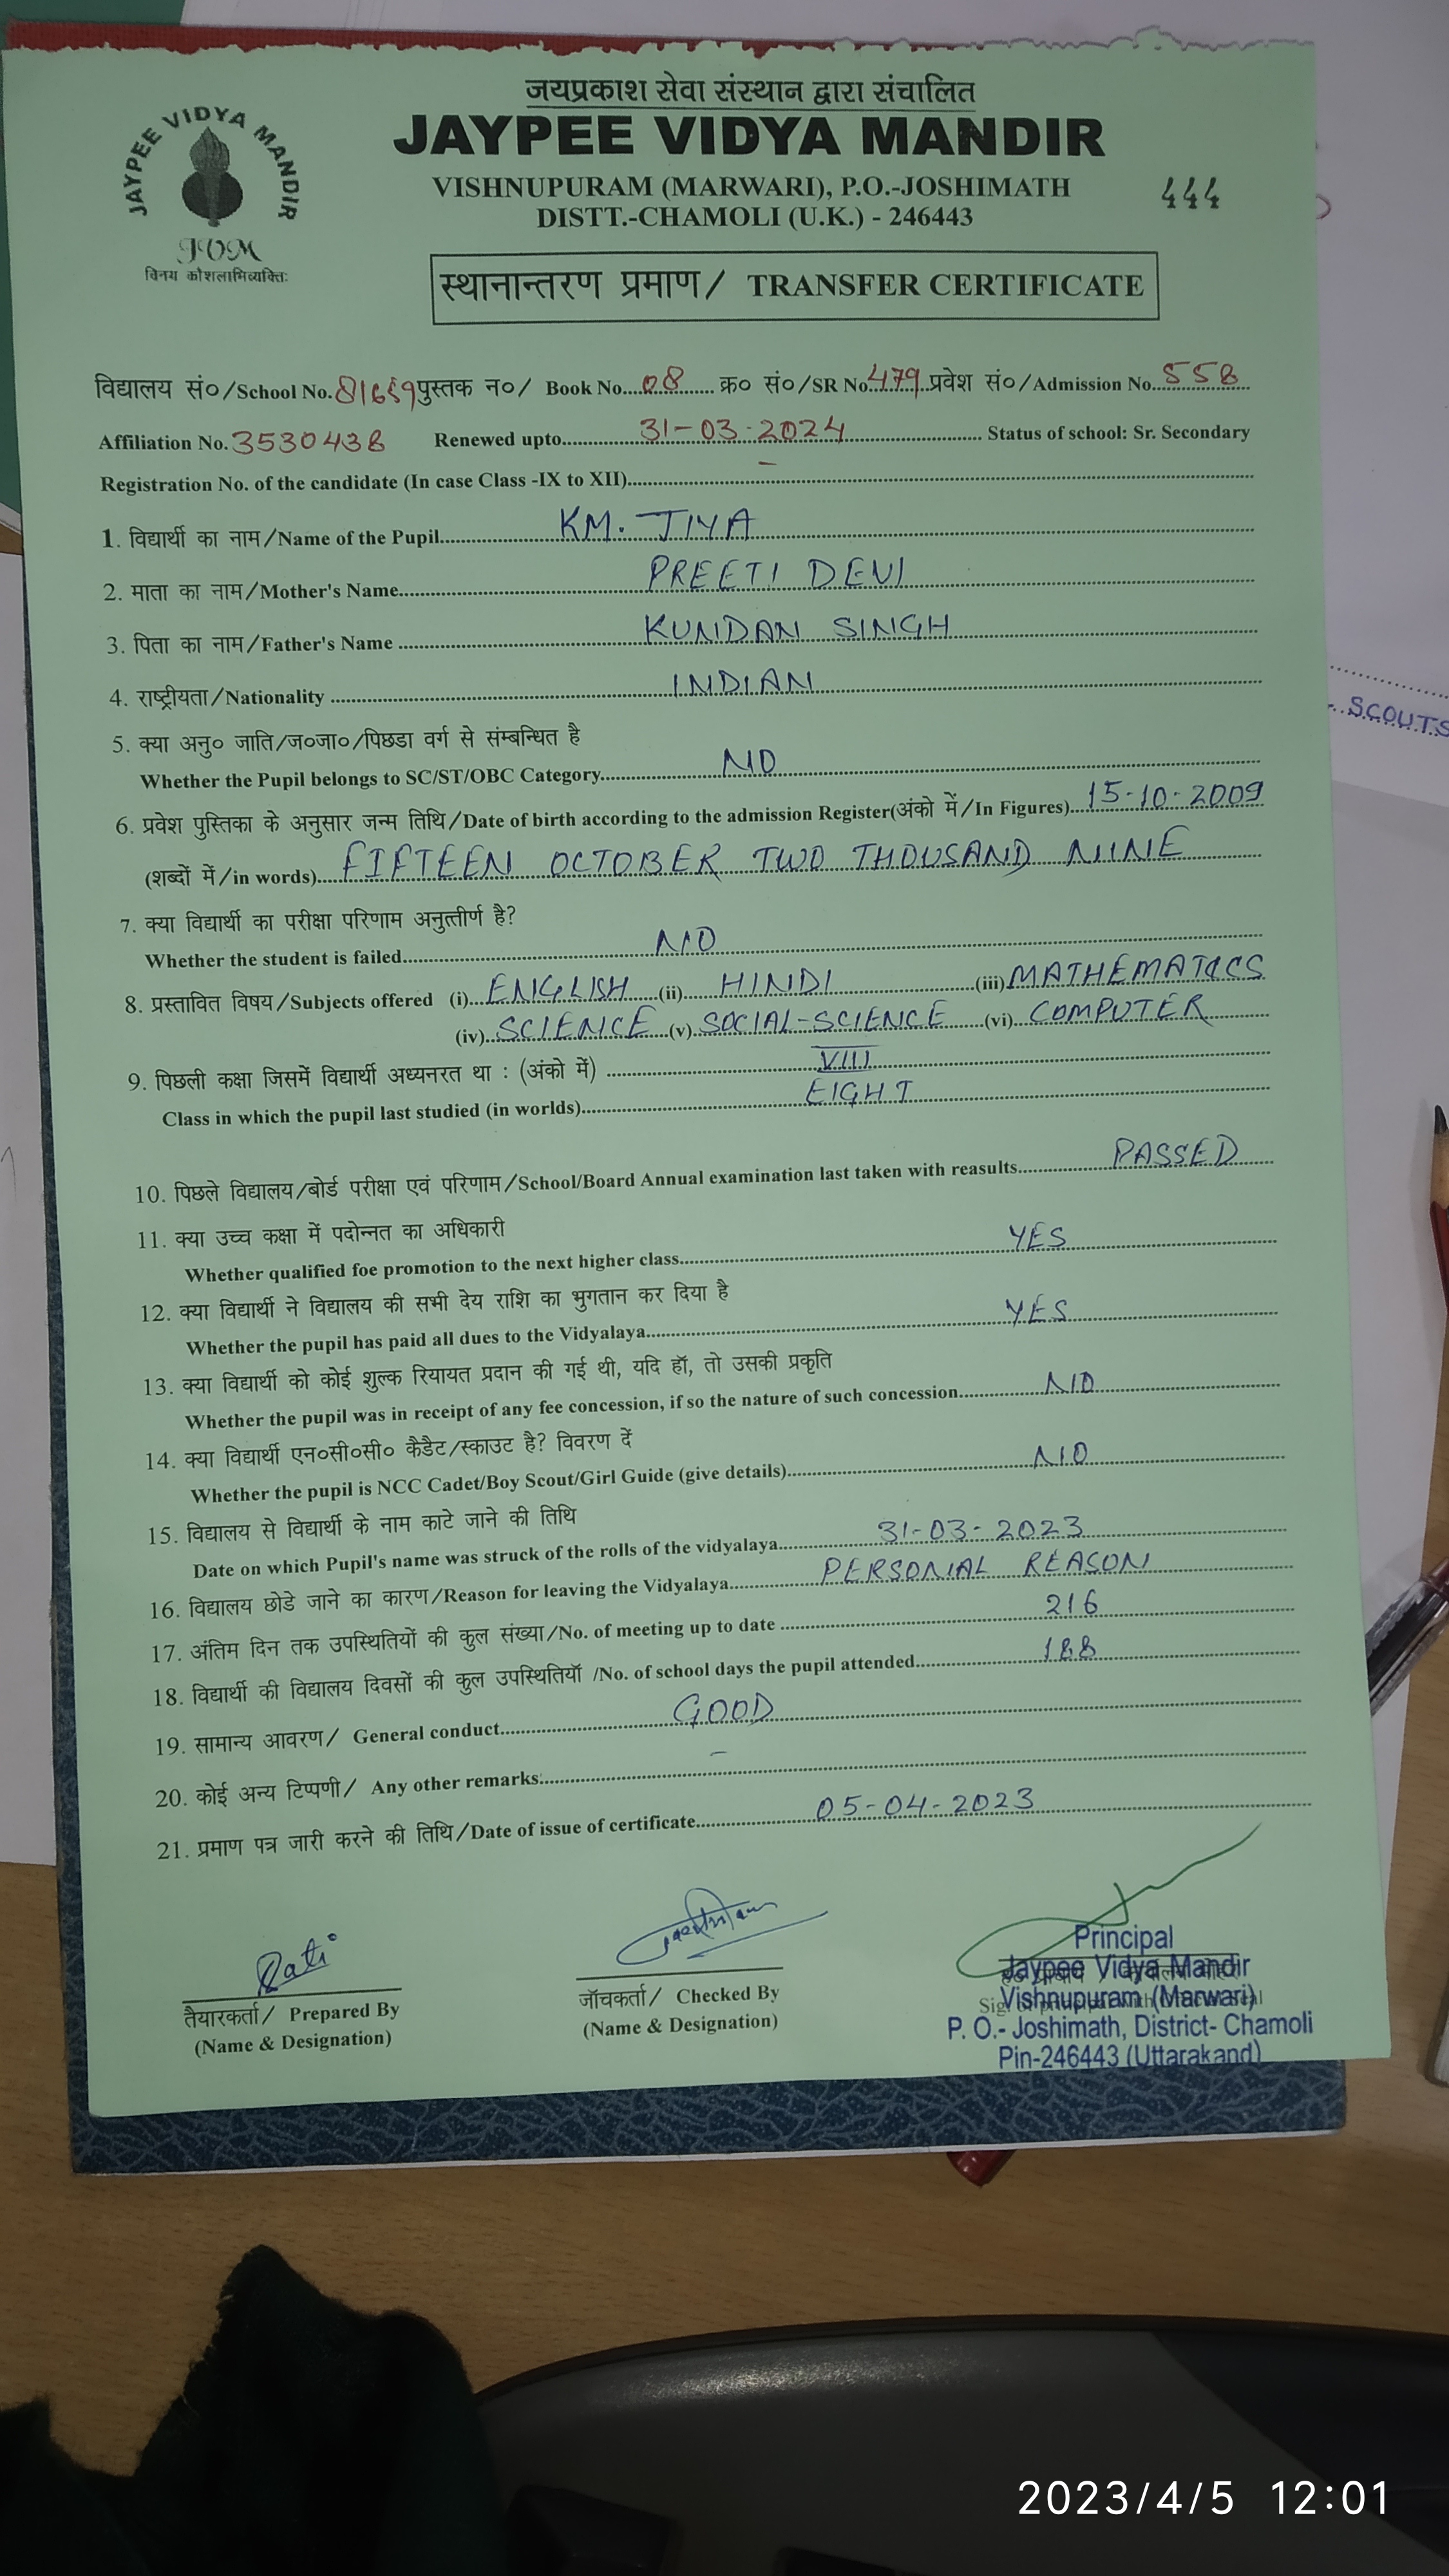 जयप्रकाश सेवा संस्थान द्वारा संचालित
JAYPEE VIDYA MANDIR
JAYPEE VIDYA MANDIR
VISHNUPURAM (MARWARI), P.O.-JOSHIMATH
444
DISTT.-CHAMOLI (U.K.) - 246443
JVM
विनय कौशलाभिव्यक्तिः
स्थानान्तरण प्रमाण/ TRANSFER CERTIFICATE
विद्यालय सं०/School No. 81659 पुस्तक न०/ Book No....08...... क्र० सं०/SR No.479.प्रवेश सं०/Admission No..558
Affiliation No. 3530438 Renewed upto.....31-03-2024..... Status of school: Sr. Secondary
Registration No. of the candidate (In case Class -IX to XII).....-.....
1. विद्यार्थी का नाम/Name of the Pupil.....KM. JIYA.....
2. माता का नाम/Mother's Name.....PREETI DEVI.....
3. पिता का नाम/Father's Name .....KUNDAN SINGH.....
4. राष्ट्रीयता/Nationality .....INDIAN.....
SCOUTS
5. क्या अनु० जाति/ज०जा०/पिछडा वर्ग से संम्बन्धित है
Whether the Pupil belongs to SC/ST/OBC Category.....NO.....
6. प्रवेश पुस्तिका के अनुसार जन्म तिथि/Date of birth according to the admission Register(अंको में/In Figures)...15-10-2009
(शब्दों में/in words)....FIFTEEN OCTOBER TWO THOUSAND NINE.....
7. क्या विद्यार्थी का परीक्षा परिणाम अनुत्तीर्ण है?
Whether the student is failed.....NO.....
8. प्रस्तावित विषय/Subjects offered (i)..ENGLISH...(ii)..HINDI.....(iii)MATHEMATICS
(iv)..SCIENCE...(v).SOCIAL-SCIENCE....(vi)..COMPUTER.....
9. पिछली कक्षा जिसमें विद्यार्थी अध्यनरत था : (अंको में) .....VIII.....
Class in which the pupil last studied (in worlds).....EIGHT.....
10. पिछले विद्यालय/बोर्ड परीक्षा एवं परिणाम/School/Board Annual examination last taken with reasults.....PASSED.....
11. क्या उच्च कक्षा में पदोन्नत का अधिकारी
Whether qualified foe promotion to the next higher class.....YES.....
12. क्या विद्यार्थी ने विद्यालय की सभी देय राशि का भुगतान कर दिया है
Whether the pupil has paid all dues to the Vidyalaya.....YES.....
13. क्या विद्यार्थी को कोई शुल्क रियायत प्रदान की गई थी, यदि हॉ, तो उसकी प्रकृति
Whether the pupil was in receipt of any fee concession, if so the nature of such concession.....NO.....
14. क्या विद्यार्थी एन०सी०सी० कैडैट/स्काउट है? विवरण दें
Whether the pupil is NCC Cadet/Boy Scout/Girl Guide (give details).....NO.....
15. विद्यालय से विद्यार्थी के नाम काटे जाने की तिथि
Date on which Pupil's name was struck of the rolls of the vidyalaya.....31-03-2023.....
16. विद्यालय छोडे जाने का कारण/Reason for leaving the Vidyalaya.....PERSONAL REASON.....
17. अंतिम दिन तक उपस्थितियों की कुल संख्या/No. of meeting up to date .....216.....
18. विद्यार्थी की विद्यालय दिवसों की कुल उपस्थितियॉ /No. of school days the pupil attended.....188.....
19. सामान्य आवरण/ General conduct.....GOOD.....
20. कोई अन्य टिप्पणी/ Any other remarks:.....-.....
21. प्रमाण पत्र जारी करने की तिथि/Date of issue of certificate.....05-04-2023.....
Rati
तैयारकर्ता/ Prepared By
(Name & Designation)
जॉचकर्ता/ Checked By
(Name & Designation)
Principal
Jaypee Vidya Mandir
Vishnupuram (Marwari)
P. O.- Joshimath, District- Chamoli
Pin-246443 (Uttarakand)
2023/4/5 12:01